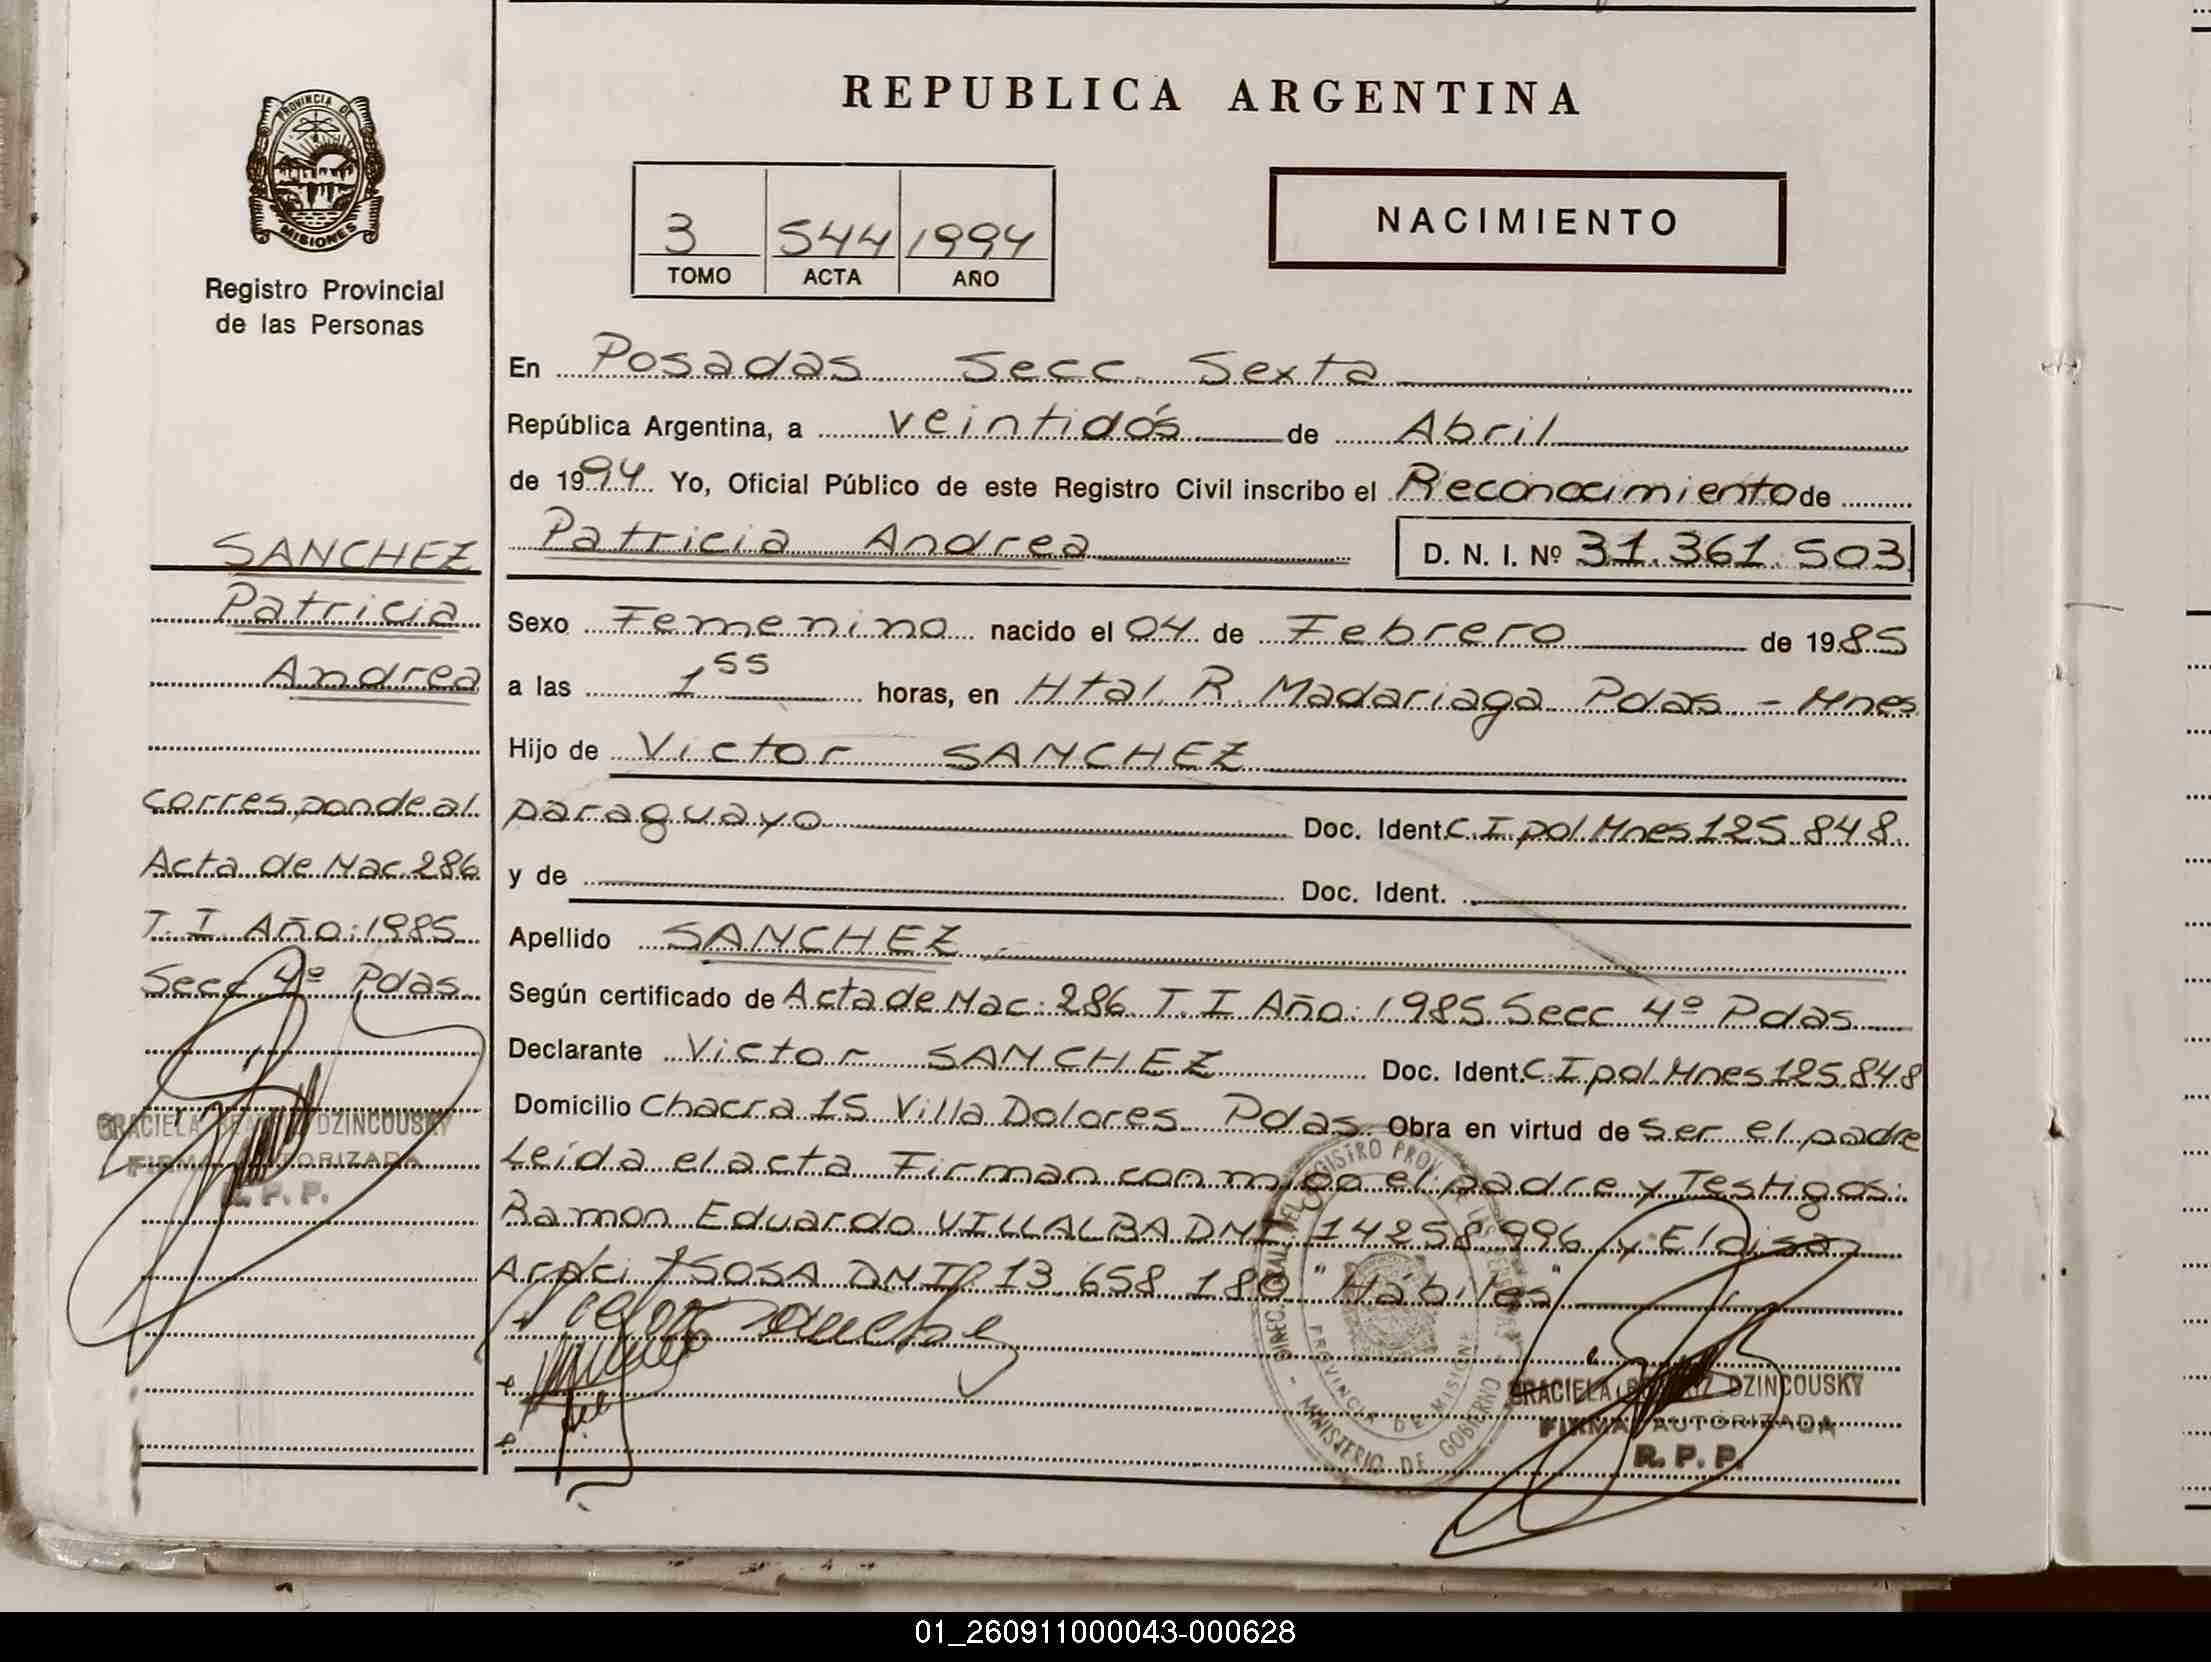 REPUBLICA ARGENTINA
PROVINCIA DE
MISIONES
Registro Provincial
de las Personas
3 544 1994
TOMO ACTA AÑO
NACIMIENTO
En Posadas Secc. Sexta
República Argentina, a veintidós de Abril
de 1994 Yo, Oficial Público de este Registro Civil inscribo el Reconocimiento de
Patricia Andrea D. N. I. Nº 31.361.503
Sexo Femenino nacido el 04 de Febrero de 1985
a las 1 55 horas, en Htal. R. Madariaga Pdas. - Mnes
Hijo de Victor SANCHEZ
paraguayo Doc. Ident. C.I.pol.Mnes 125.848.
y de Doc. Ident.
Apellido SANCHEZ
Según certificado de Acta de Nac: 286 T.I Año: 1985 Secc 4º Pdas
Declarante Victor SANCHEZ Doc. Ident. C.I.pol.Mnes 125.848
Domicilio Chacra 15 Villa Dolores Pdas. Obra en virtud de ser el padre
Leída el acta Firman conmigo el padre y Testigos:
Ramon Eduardo VILLALBA DNI. 14258.996 y Eloisa
SOSA DNIº 13.658.180 "Hábiles"
SANCHEZ
Patricia
Andrea
corresponde al
Acta de Nac.286
T.I. Año: 1985
Secc 4º Pdas.
GRACIELA BEATRIZ DZINCOUSKY
FIRMA AUTORIZADA
R. P. P.
DIREC. GRAL. DEL REGISTRO PROV. DE LAS PERSONAS
PROVINCIA DE MISIONES
- MINISTERIO DE GOBIERNO -
GRACIELA BEATRIZ DZINCOUSKY
FIRMA AUTORIZADA
R. P. P.
01_260911000043-000628